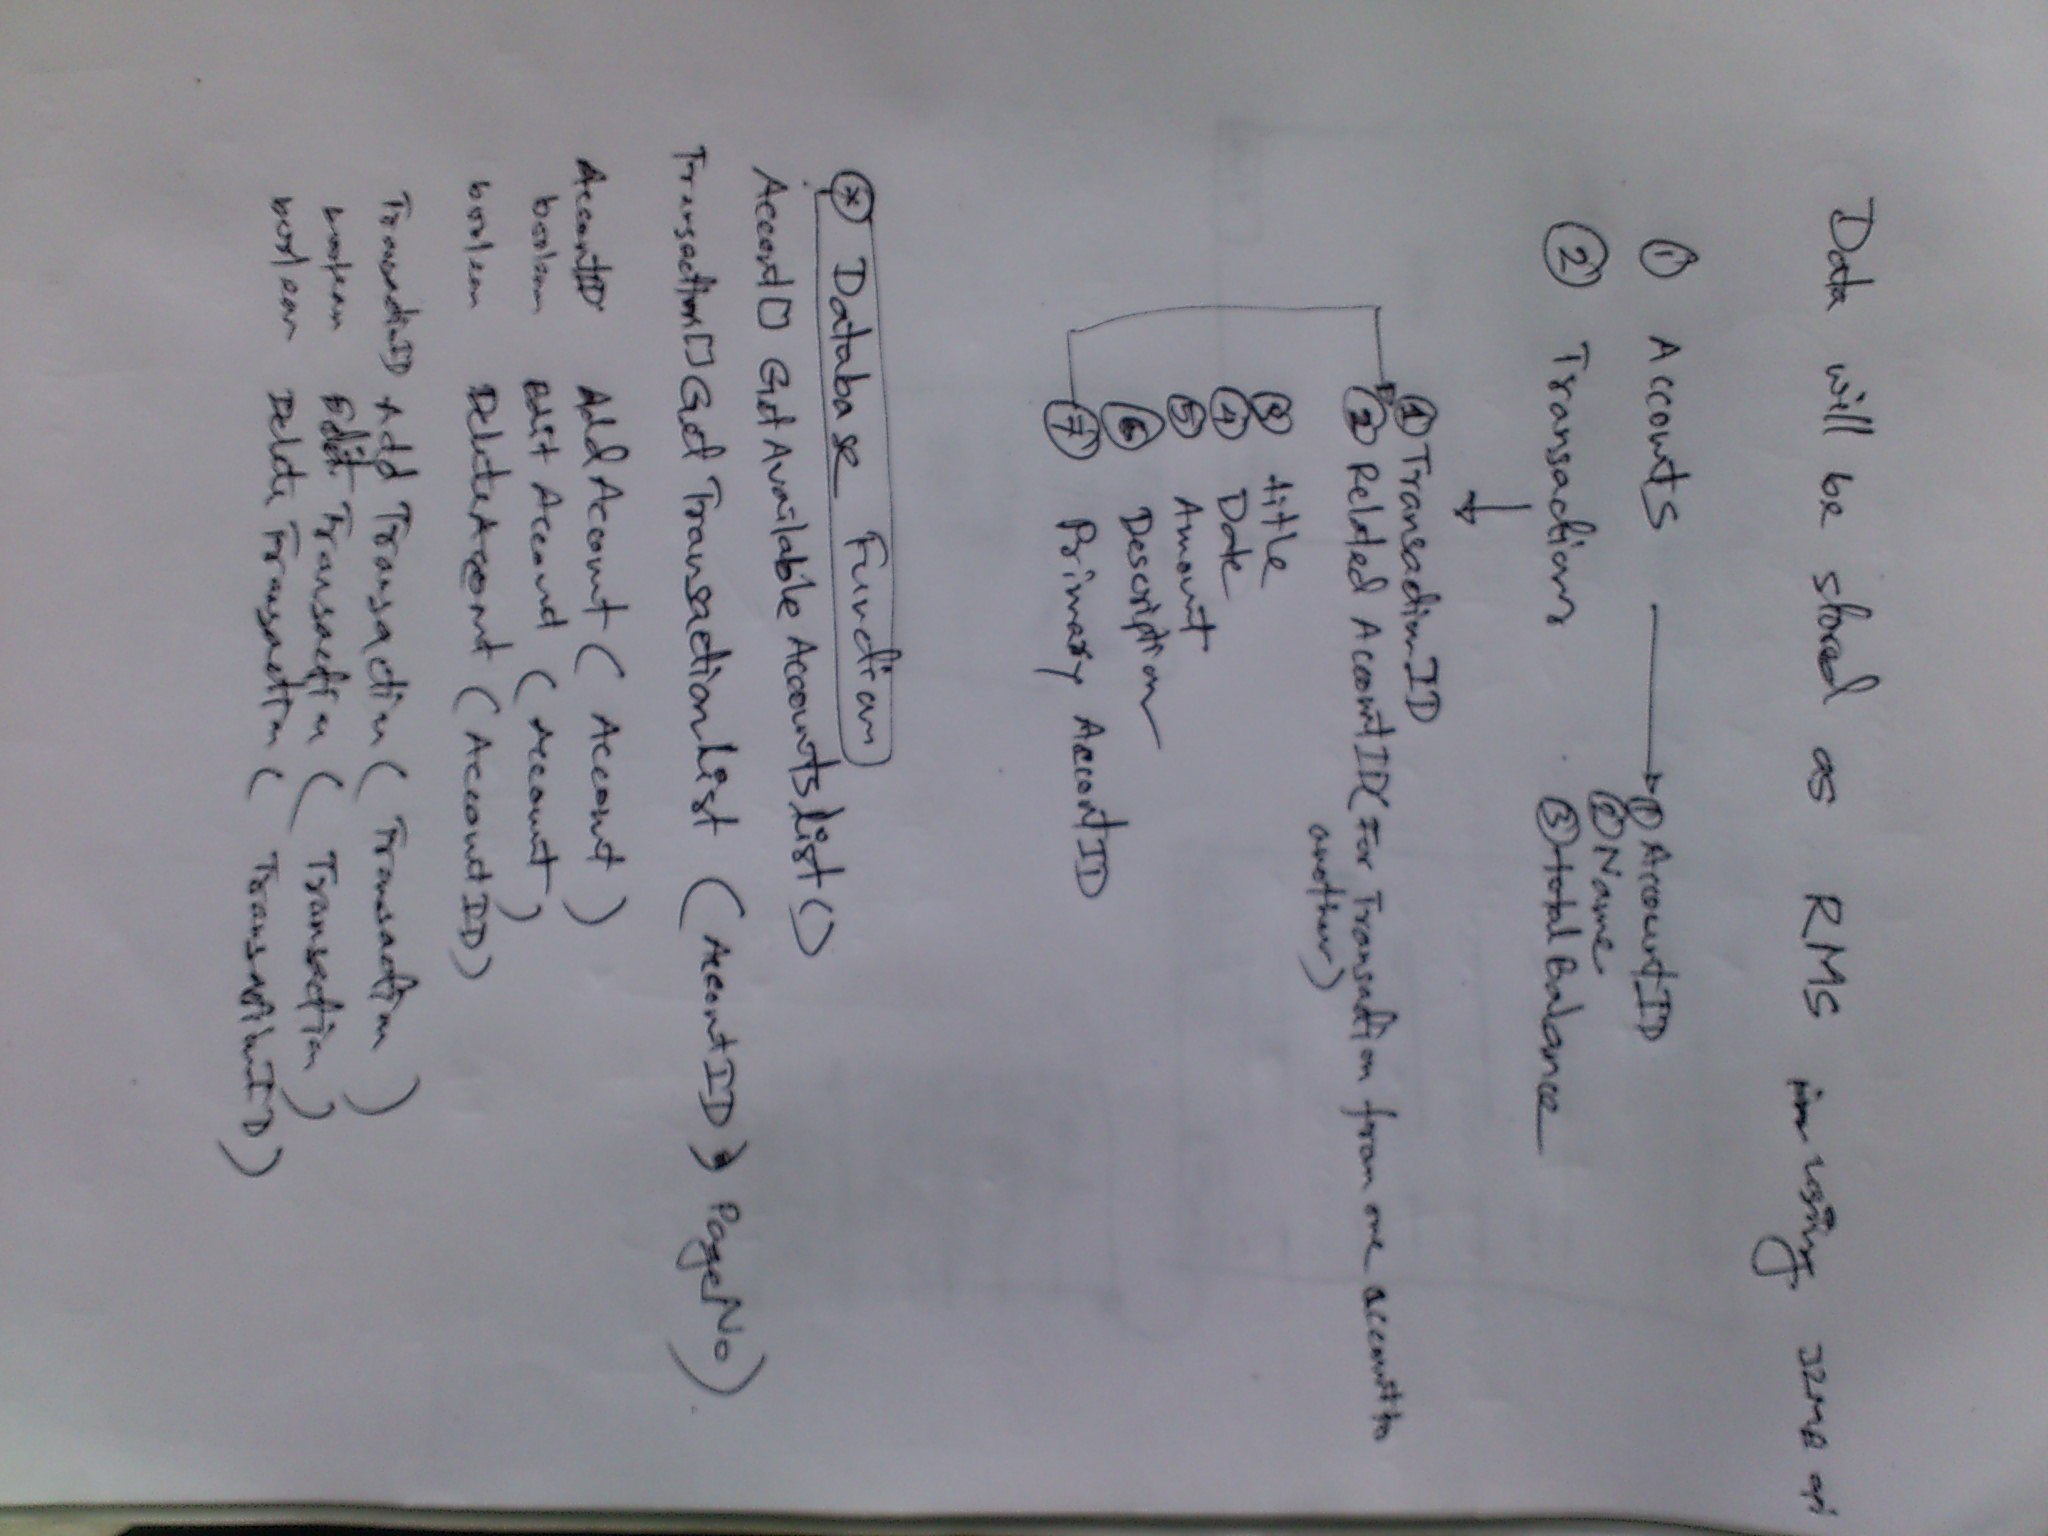 Data will be stored as RMS in using J2ME api
① Accounts → ① AccountID
② Name
② Transactions
③ total Balance
① TransactionID
② Related AccountID (For Transaction from one account to
another)
③ title
④ Date
⑤ Amount
⑥ Description
⑦ Primary AccontID
* Database Function
Account[] GetAvailable AccountsList()
Transaction[] Get TransactionList (AccontID, PageNo)
AccontID Add Account (Account)
boolean Edit Account (Account)
boolean DeleteAccount (AccountID)
TransactionID Add Transaction (Transaction)
boolean Edit Transaction (Transaction)
boolean Delete Transaction (TransactionID)